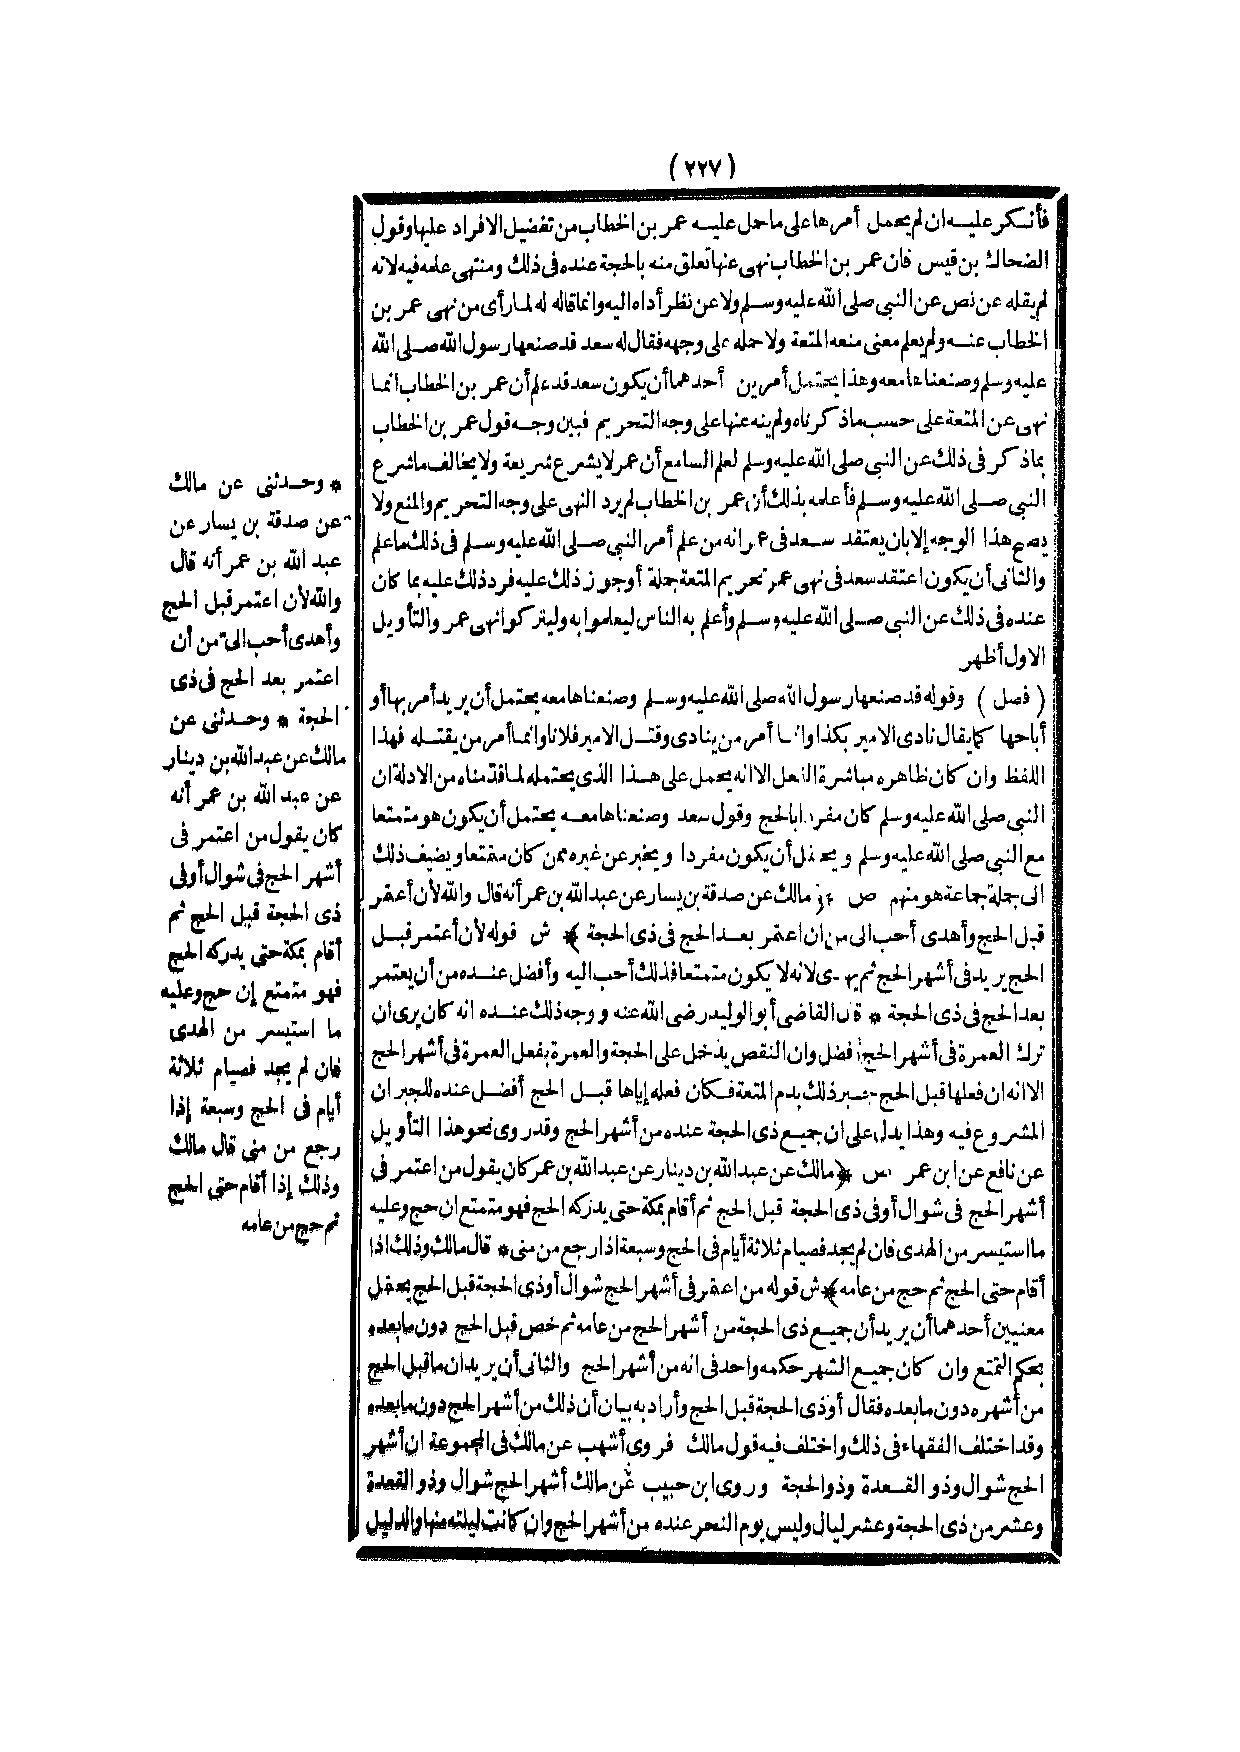 (٢٢٧)
فأنكر عليه ان لم يحمل أمرها على ما حمل عليه عمر بن الخطاب من تفضيل الافراد عليها وقول
الضحاك بن قيس فان عمر بن الخطاب نهى عنها تعلق منه بالحجة عنده فى ذلك ومنتهى علمه فيه لانه
لم يقله عن نص عن النبى صلى الله عليه وسلم ولا عن نظر أداه اليه وانما قاله له لما رأى من نهى عمر بن
الخطاب عنه ولم يعلم معنى منعه المتعة ولا حمله على وجهه فقال له سعد قد صنعها رسول الله صلى الله
عليه وسلم وصنعناها معه وهذا يحتمل أمرين أحدهما أن يكون سعد قد علم أن عمر بن الخطاب انما
نهى عن المتعة على حسب ماذكرناه ولم ينه عنها على وجه التحريم فبين وجه قول عمر بن الخطاب
بماذكر فى ذلك عن النبى صلى الله عليه وسلم لعلم السامع أن عمر لايشرع شريعة ولا يخالف ماشرع
النبى صلى الله عليه وسلم فأعلمه بذلك أن عمر بن الخطاب لم يرد النهى على وجه التحريم والمنع ولا
يصح هذا الوجه إلا بان يعتقد سعد فى عمر انه من علم أمر النبى صلى الله عليه وسلم فى ذلك ماعلم
والثانى أن يكون اعتقد سعد فى نهى عمر تحريم المتعة جملة أو جوز ذلك عليه فرد ذلك عليه بما كان
عنده فى ذلك عن النبى صلى الله عليه وسلم وأعلم به الناس ليعملوا به وليتركوا نهى عمر والتأويل
الاول أظهر
( فصل ) وقوله قد صنعها رسول الله صلى الله عليه وسلم وصنعناها معه يحتمل أن يريد أمر بها أو
أباحها كما يقال نادى الامير بكذا وانما أمر من ينادى وقتل الامير فلانا وانما أمر من يقتله فهذا
اللفظ وان كان ظاهره مباشرة الفعل الا انه يحمل على هذا الذى يحتمله لما قدمناه من الادلة ان
النبى صلى الله عليه وسلم كان مفردا بالحج وقول سعد وصنعناها معه يحتمل أن يكون هو متمتعا
مع النبى صلى الله عليه وسلم ويحتمل أن يكون مفردا ويخبر عن غيره ممن كان متمتعا ويضيف ذلك
الى جملة جماعة هو منهم ص ﴿ مالك عن صدقة بن يسار عن عبد الله بن عمر أنه قال والله لأن أعتمر
قبل الحج وأهدى أحب الى من ان اعتمر بعد الحج فى ذى الحجة ﴾ ش قوله لأن أعتمر قبل
الحج يريد فى أشهر الحج ثم يهدى لانه لا يكون متمتعا فذلك أحب اليه وأفضل عنده من أن يعتمر
بعد الحج فى ذى الحجة * قال القاضى أبو الوليد رضى الله عنه ووجه ذلك عنده انه كان يرى ان
ترك العمرة فى أشهر الحج أفضل وان النقص يدخل على الحجة والعمرة بفعل العمرة فى أشهر الحج
الا انه ان فعلها قبل الحج جبر ذلك بدم المتعة فكان فعله إياها قبل الحج أفضل عنده للجبران
المشروع فيه وهذا يدل على ان جميع ذى الحجة عنده من أشهر الحج وقد روى نحو هذا التأويل
عن نافع عن ابن عمر ص ﴿ مالك عن عبد الله بن دينار عن عبد الله بن عمر كان يقول من اعتمر فى
أشهر الحج فى شوال أو فى ذى الحجة قبل الحج ثم أقام بمكة حتى يدركه الحج فهو متمتع ان حج وعليه
ما استيسر من الهدى فان لم يجد فصيام ثلاثة أيام فى الحج وسبعة اذا رجع من منى * قال مالك وذلك اذا
أقام حتى الحج ثم حج من عامه ﴾ ش قوله من اعتمر فى أشهر الحج شوال أو ذى الحجة قبل الحج يحتمل
معنيين أحدهما أن يريد أن جميع ذى الحجة من أشهر الحج من عامه ثم خص قبل الحج دون مابعده
بحكم التمتع وان كان جميع الشهر حكمه واحد فى انه من أشهر الحج والثانى أن يريد ان ماقبل الحج
من أشهره دون مابعده فقال أو ذى الحجة قبل الحج وأراد به بيان أن ذلك من أشهر الحج دون مابعده
وقد اختلف الفقهاء فى ذلك واختلف فيه قول مالك فروى أشهب عن مالك فى المجموعة ان أشهر
الحج شوال وذو القعدة وذو الحجة وروى ابن حبيب عن مالك أشهر الحج شوال وذو القعدة
وعشر من ذى الحجة وعشر ليال وليس يوم النحر عنده من أشهر الحج وان كانت ليلته منها والدليل
* وحدثنى عن مالك
عن صدقة بن يسار عن
عبد الله بن عمر أنه قال
والله لأن اعتمر قبل الحج
وأهدى أحب الى من أن
اعتمر بعد الحج فى ذى
الحجة * وحدثنى عن
مالك عن عبد الله بن دينار
عن عبد الله بن عمر أنه
كان يقول من اعتمر فى
أشهر الحج فى شوال أو فى
ذى الحجة قبل الحج ثم
أقام بمكة حتى يدركه الحج
فهو متمتع إن حج وعليه
ما استيسر من الهدى
فان لم يجد فصيام ثلاثة
أيام فى الحج وسبعة إذا
رجع من منى قال مالك
وذلك إذا أقام حتى الحج
ثم حج من عامه